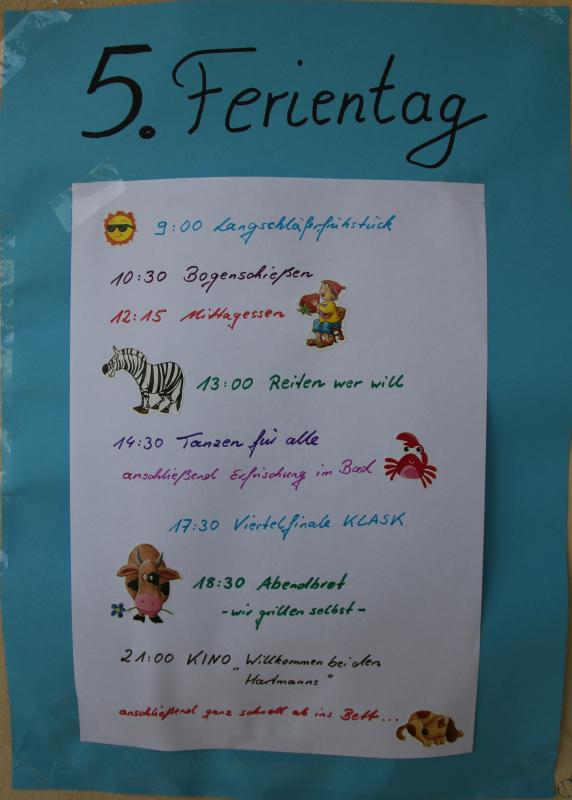 5. Ferientag
9:00 Langschläferfrühstück
10:30 Bogenschießen
12:15 Mittagessen
13:00 Reiten wer will
14:30 Tanzen für alle
anschließend Erfrischung im Bad
17:30 Viertelfinale KLASK
18:30 Abendbrot
- wir grillen selbst -
21:00 KINO „Willkommen bei den
Hartmanns"
anschließend ganz schnell ab ins Bett...